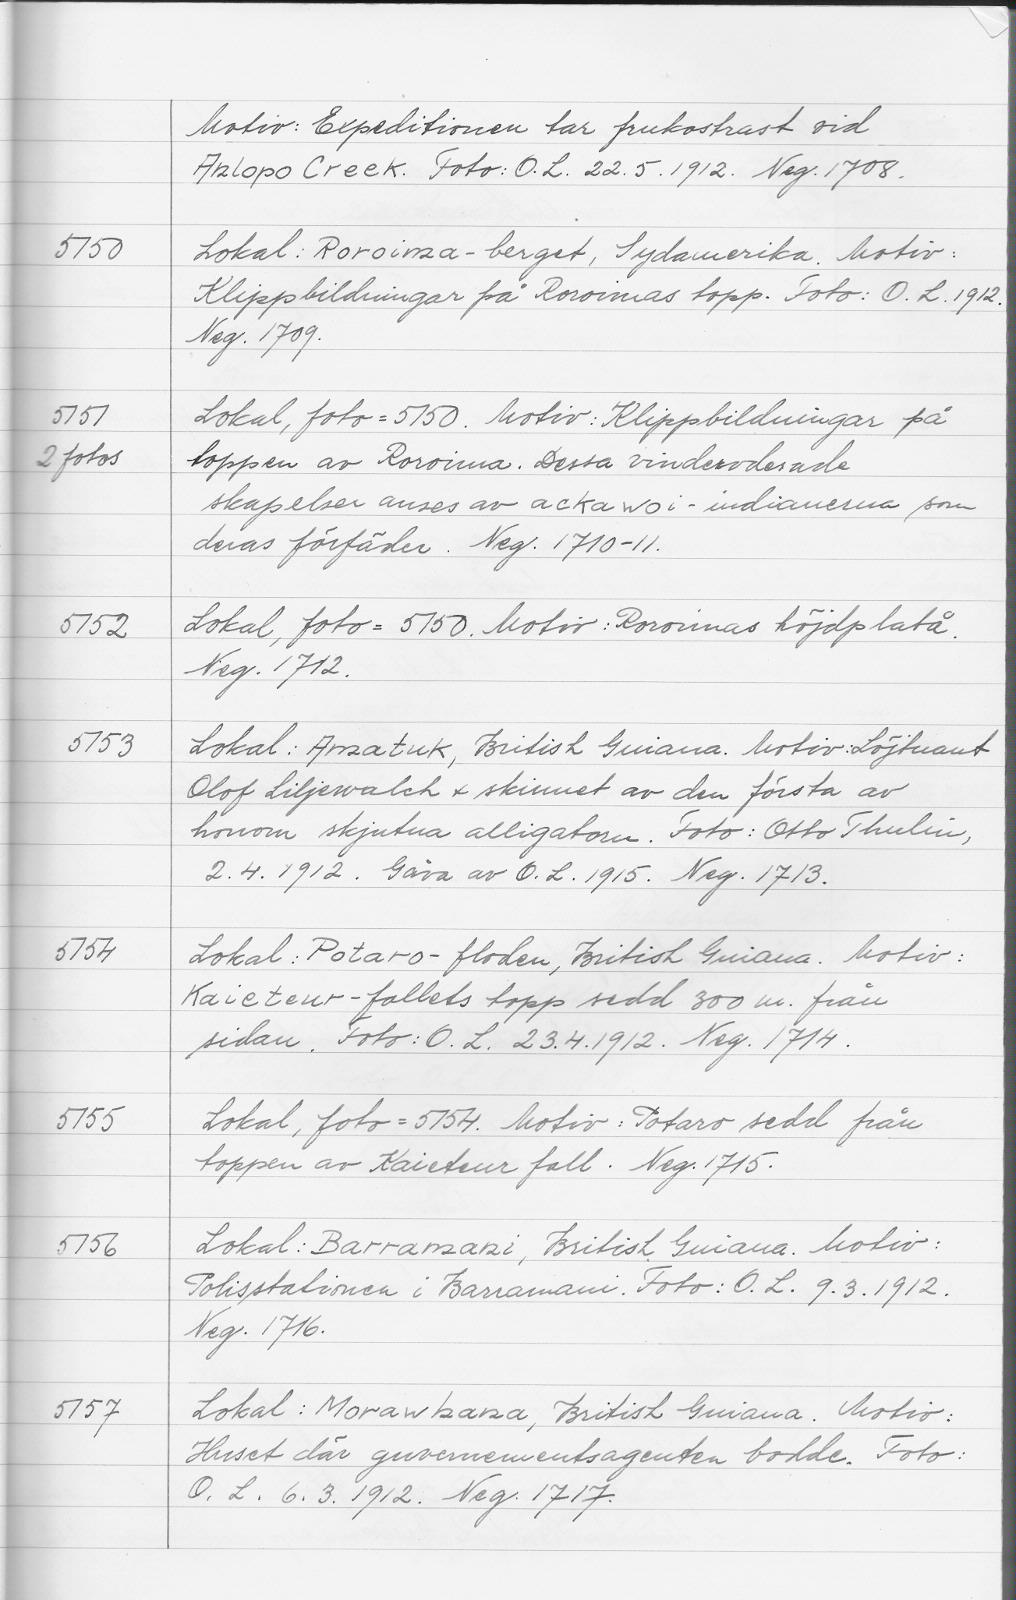 Motiv: Expeditionen tar frukostrast vid
Anlopo Creek. Foto: O.L. 22.5.1912. Neg. 1708.
5150 Lokal: Roroima-berget, Sydamerika. Motiv:
Klippbildningar på Roroimas topp. Foto: O.L. 1912.
Neg. 1709.
5151 Lokal, foto = 5150. Motiv: Klippbildningar på
2 fotos toppen av Roroima. Dessa vinderoderade
skapelser anses av ackawoi-indianerna som
deras förfäder. Neg. 1710-11.
5152 Lokal, foto = 5150. Motiv: Roroimas höjdplatå.
Neg. 1712.
5153 Lokal: Amatuk, British Guiana. Motiv: Löjtnant
Olof Liljewalch + skinnet av den första av
honom skjutna alligatorn. Foto: Otto Thulin,
2.4.1912. Gåva av O.L. 1915. Neg. 1713.
5154 Lokal: Potaro-floden, British Guiana. Motiv:
Kaieteur-fallets topp sedd 300 m. från
sidan. Foto: O.L. 23.4.1912. Neg. 1714.
5155 Lokal, foto = 5154. Motiv: Potaro sedd från
toppen av Kaieteur fall. Neg. 1715.
5156 Lokal: Barramani, British Guiana. Motiv:
Polisstationen i Barramani. Foto: O.L. 9.3.1912.
Neg. 1716.
5157 Lokal: Morawhana, British Guiana. Motiv:
Huset där guvernementsagenten bodde. Foto:
O.L. 6.3.1912. Neg. 1717.